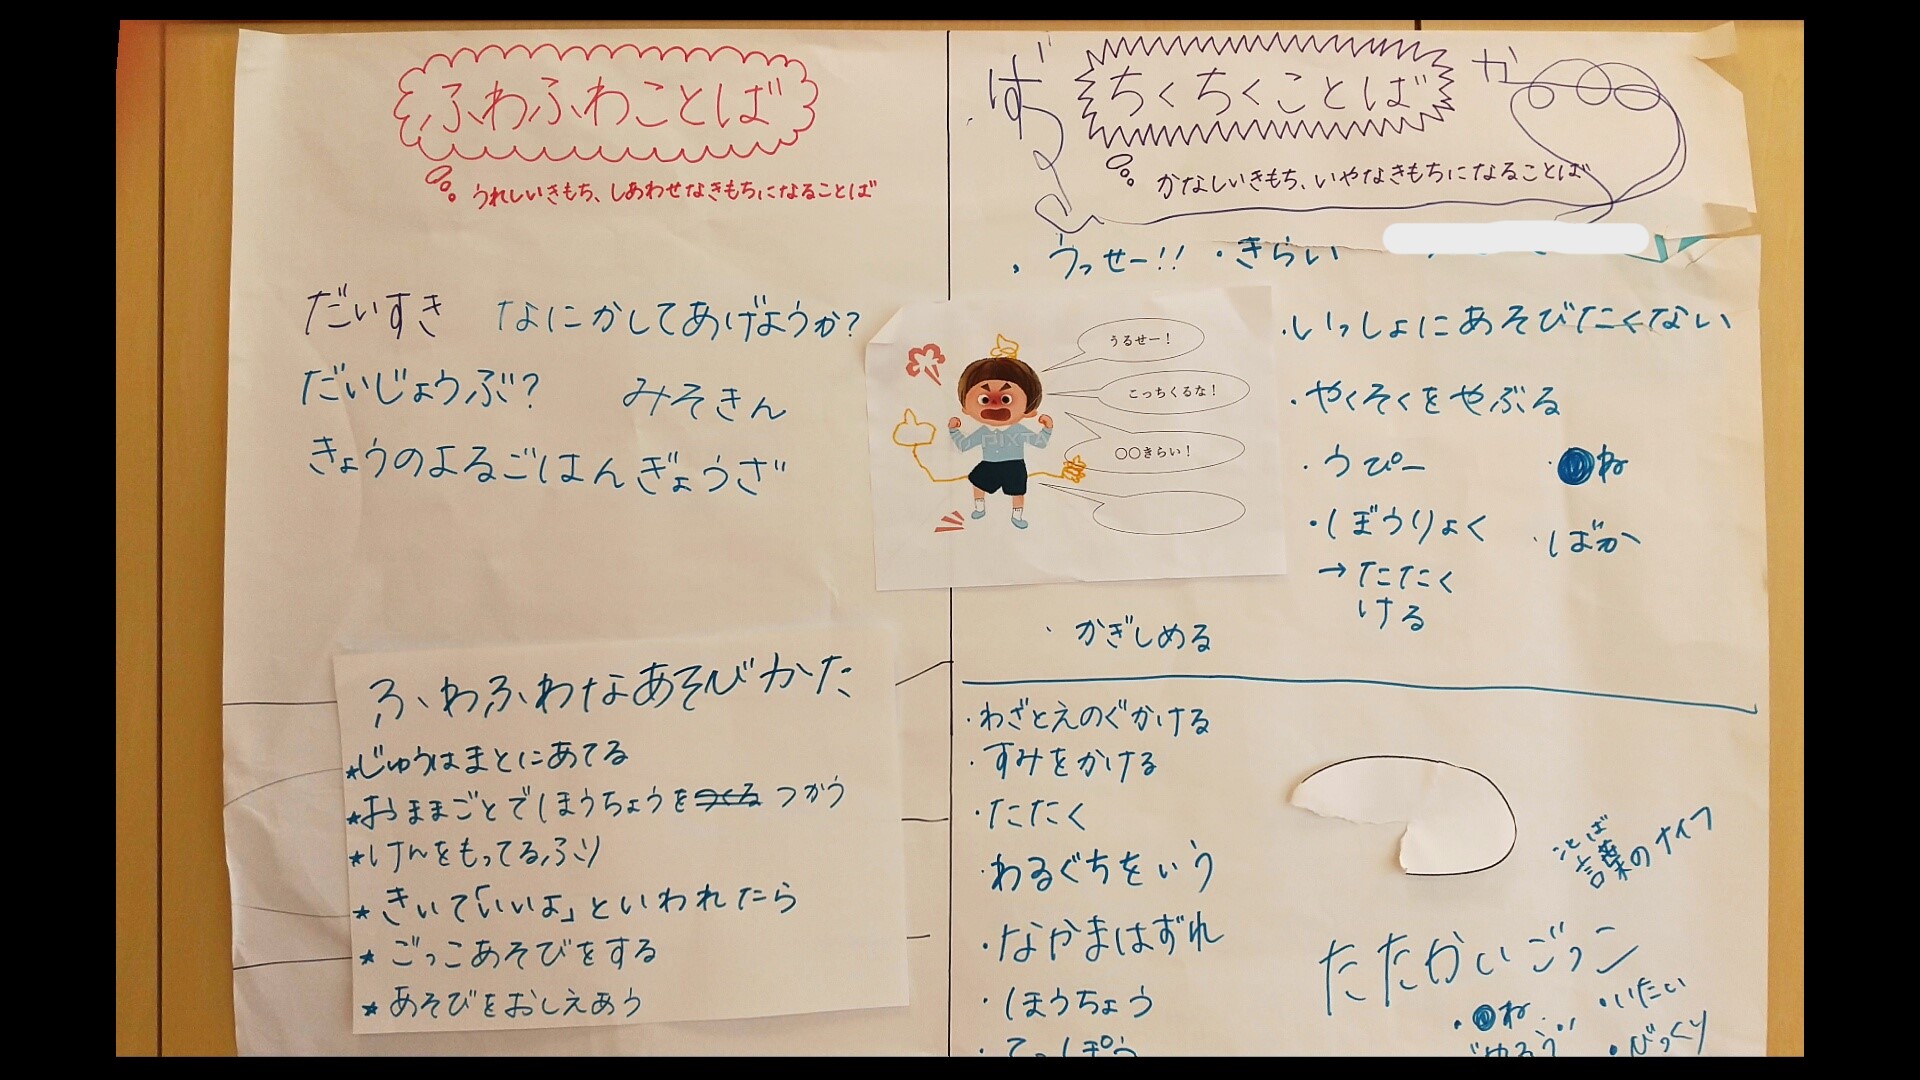 ふわふわことば
うれしいきもち、しあわせなきもちになることば
だいすき
なにかしてあげようか?
だいじょうぶ?
みそきん
きょうのよるごはんぎょうざ
ふわふわなあそびかた
★じゅうはまとにあてる
★おままごとでほうちょうをつかう
★けんをもってるふり
★きいて「いいよ」といわれたら
★ごっこあそびをする
★あそびをおしえあう
ちくちくことば
かなしいきもち、いやなきもちになることば
ば
か
・うっせー!!
・きらい
うるせー!
こっちくるな!
〇〇きらい!
PIXTA
・いっしょにあそびたくない
・やくそくをやぶる
・うぴー
・●ね
・ぼうりょく
→たたく
ける
・ばか
・かぎしめる
・わざとえのぐかける
・すみをかける
・たたく
・わるぐちをいう
・なかまはずれ
・ほうちょう
・てっぽう
ことば
言葉のナイフ
たたかいごっこ
・●ね
・いたい
・びっくり